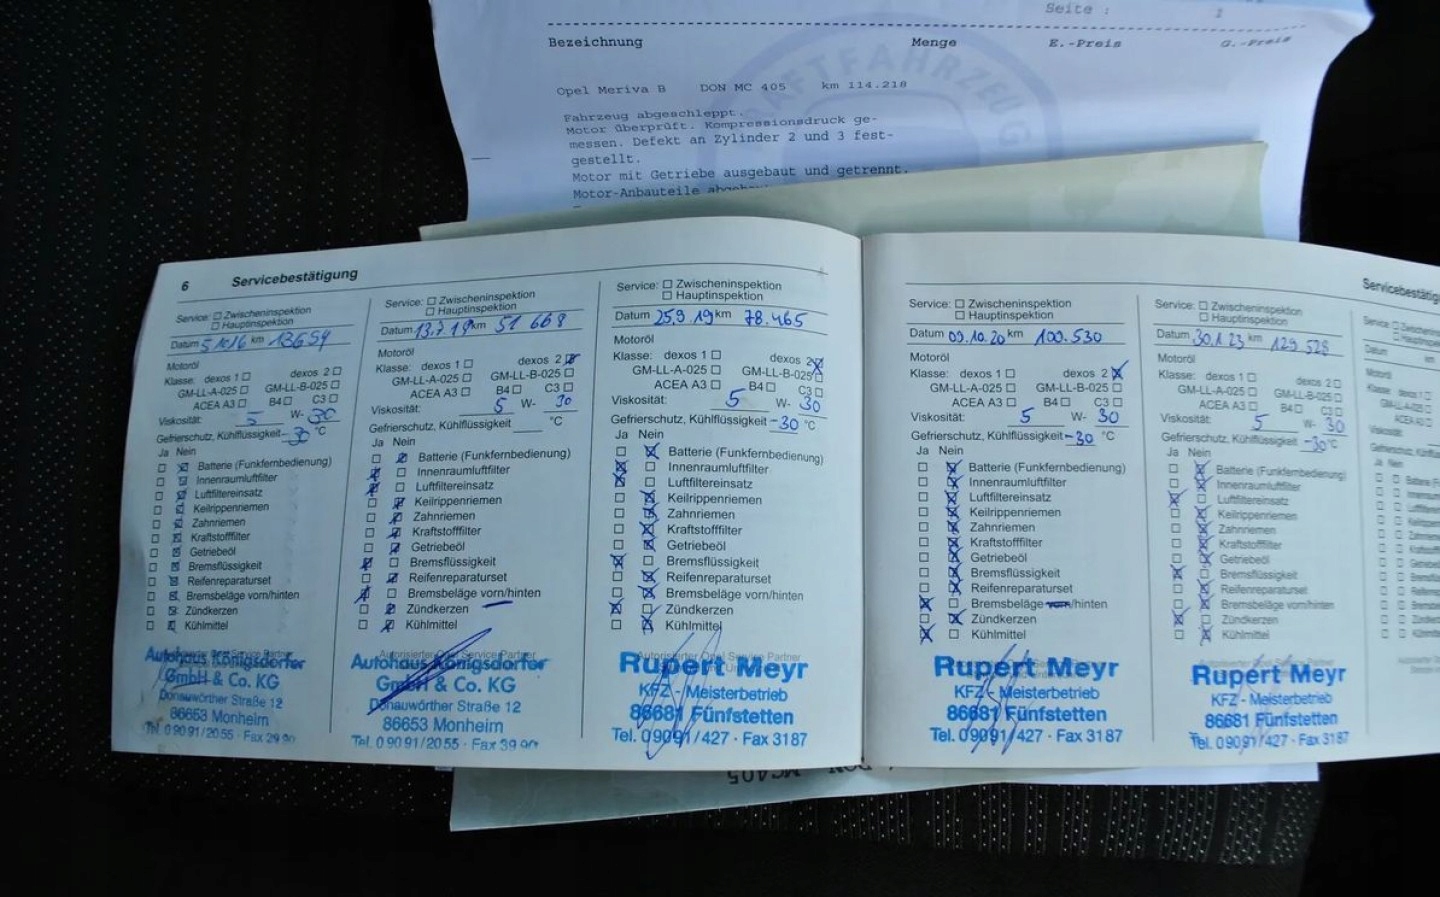 Seite :
Bezeichnung Menge E.-Preis G.-Preis
KRAFTFAHRZEUG
Opel Meriva B DON MC 405 km 114.218
Fahrzeug abgeschleppt.
Motor überprüft. Kompressionsdruck ge-
messen. Defekt an Zylinder 2 und 3 fest-
gestellt.
Motor mit Getriebe ausgebaut und getrennt.
Motor-Anbauteile
6 Servicebestätigung
Service: Zwischeninspektion
Hauptinspektion
Datum km 13654
Motoröl
Klasse: dexos 1 dexos 2
GM-LL-A-025 GM-LL-B-025
ACEA A3 B4 C3
Viskosität: 5 W- 30
Gefrierschutz, Kühlflüssigkeit -30 °C
Ja Nein
Batterie (Funkfernbedienung)
Innenraumluftfilter
Luftfiltereinsatz
Keilrippenriemen
Zahnriemen
Kraftstofffilter
Getriebeöl
Bremsflüssigkeit
Reifenreparaturset
Bremsbeläge vorn/hinten
Zündkerzen
Kühlmittel
Autohaus Königsdorfer
GmbH & Co. KG
Donauwörther Straße 12
86653 Monheim
Tel. 09091/2055 · Fax
Service: Zwischeninspektion
Hauptinspektion
Datum 13.7. km 51 668
Motoröl
Klasse: dexos 1 dexos 2
GM-LL-A-025 GM-LL-B-025
ACEA A3 B4 C3
Viskosität: 5 W- 30
Gefrierschutz, Kühlflüssigkeit °C
Ja Nein
Batterie (Funkfernbedienung)
Innenraumluftfilter
Luftfiltereinsatz
Keilrippenriemen
Zahnriemen
Kraftstofffilter
Getriebeöl
Bremsflüssigkeit
Reifenreparaturset
Bremsbeläge vorn/hinten
Zündkerzen
Kühlmittel
Autohaus Königsdorfer
GmbH & Co. KG
Donauwörther Straße 12
86653 Monheim
Tel. 09091/2055 · Fax
Service: Zwischeninspektion
Hauptinspektion
Datum 25.9.19 km 78.465
Motoröl
Klasse: dexos 1 dexos 2
GM-LL-A-025 GM-LL-B-025
ACEA A3 B4 C3
Viskosität: 5 W- 30
Gefrierschutz, Kühlflüssigkeit -30 °C
Ja Nein
Batterie (Funkfernbedienung)
Innenraumluftfilter
Luftfiltereinsatz
Keilrippenriemen
Zahnriemen
Kraftstofffilter
Getriebeöl
Bremsflüssigkeit
Reifenreparaturset
Bremsbeläge vorn/hinten
Zündkerzen
Kühlmittel
Rupert Meyr
KFZ - Meisterbetrieb
86681 Fünfstetten
Tel. 09091/427 · Fax 3187
Service: Zwischeninspektion
Hauptinspektion
Datum 09.10.20 km 100.530
Motoröl
Klasse: dexos 1 dexos 2
GM-LL-A-025 GM-LL-B-025
ACEA A3 B4 C3
Viskosität: 5 W- 30
Gefrierschutz, Kühlflüssigkeit -30 °C
Ja Nein
Batterie (Funkfernbedienung)
Innenraumluftfilter
Luftfiltereinsatz
Keilrippenriemen
Zahnriemen
Kraftstofffilter
Getriebeöl
Bremsflüssigkeit
Reifenreparaturset
Bremsbeläge vorn/hinten
Zündkerzen
Kühlmittel
Rupert Meyr
KFZ - Meisterbetrieb
86681 Fünfstetten
Tel. 09091/427 · Fax 3187
Service: Zwischeninspektion
Hauptinspektion
Datum 30.1.23 km 129 528
Motoröl
Klasse: dexos 1 dexos 2
GM-LL-A-025 GM-LL-B-025
ACEA A3 B4 C3
Viskosität: 5 W- 30
Gefrierschutz, Kühlflüssigkeit -30 °C
Ja Nein
Batterie (Funkfernbedienung)
Innenraumluftfilter
Luftfiltereinsatz
Keilrippenriemen
Zahnriemen
Kraftstofffilter
Getriebeöl
Bremsflüssigkeit
Reifenreparaturset
Bremsbeläge vorn/hinten
Zündkerzen
Kühlmittel
Rupert Meyr
KFZ - Meisterbetrieb
86681 Fünfstetten
Tel. 09091/427 · Fax 3187
DON MC405